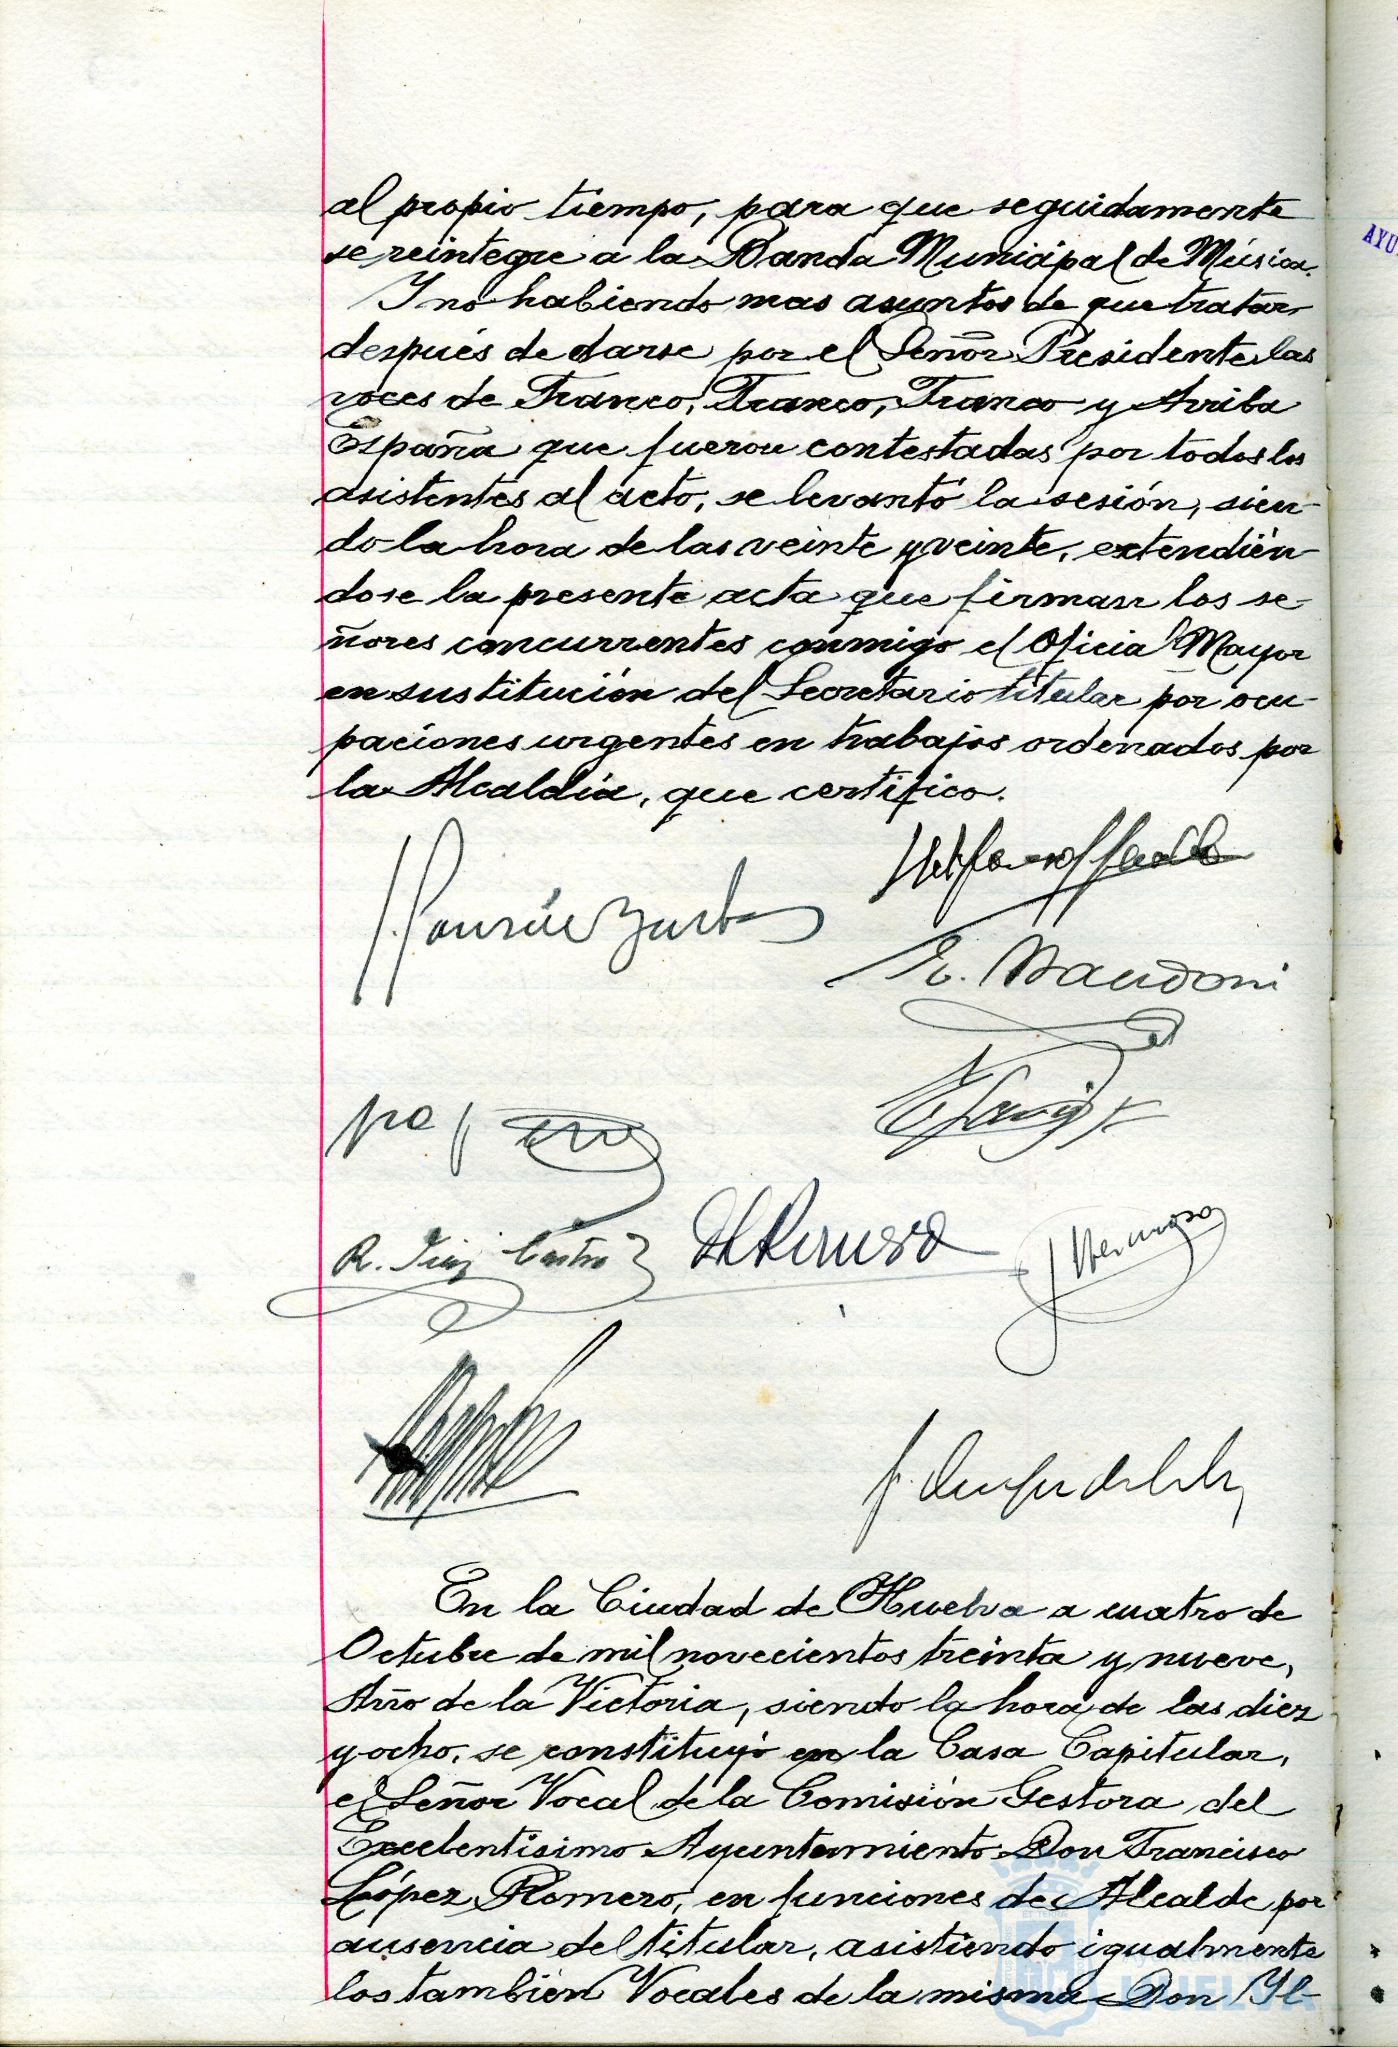 al propio tiempo, para que seguidamente
se reintegre a la Banda Municipal de Música.
Y no habiendo mas asuntos de que tratar
después de darse por el Señor Presidente las
voces de Franco, Franco, Franco y Arriba
España que fueron contestadas por todos los
asistentes al acto, se levantó la sesión, sien-
do la hora de las veinte y veinte, extendién-
dose la presente acta que firman los se-
ñores concurrentes conmigo el Oficial Mayor
en sustitución del Secretario titular por ocu-
paciones urgentes en trabajos ordenados por
la Alcaldía, que certifico.
E. Mandoni
R. Diaz Castro
J Hermoso
En la Ciudad de Huelva a cuatro de
Octubre de mil novecientos treinta y nueve,
Año de la Victoria, siendo la hora de las diez
y ocho, se constituyó en la Casa Capitular,
el Señor Vocal de la Comisión Gestora del
Excelentísimo Ayuntamiento Don Francisco
López Romero, en funciones de Alcalde por
ausencia del titular, asistiendo igualmente
los también Vocales de la misma Don Yl-
HUELVA
AYU